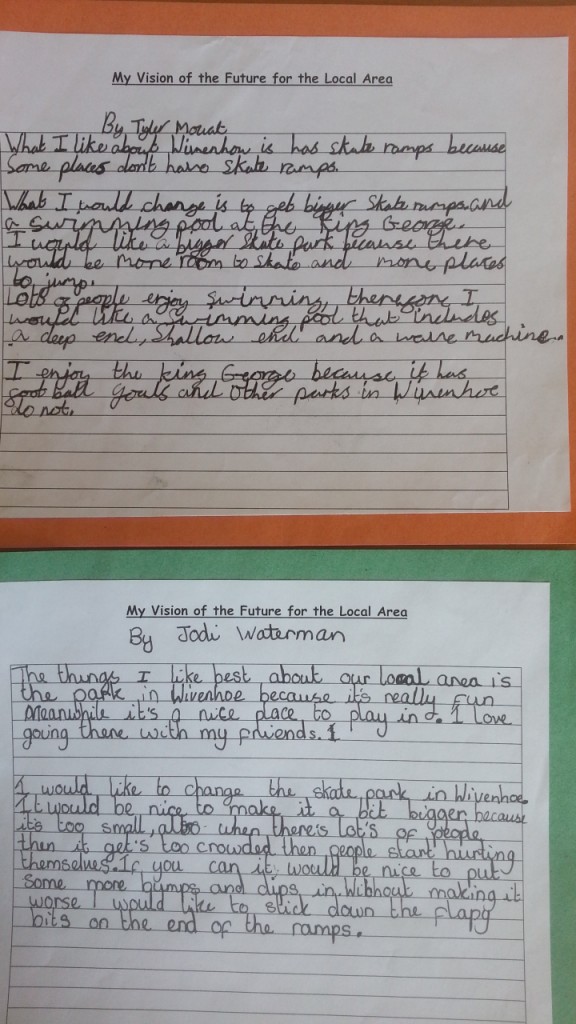 My Vision of the Future for the Local Area
By Tyler Mouat
What I like about Winenhow is has skate ramps because
Some places don't have skate ramps.
What I would change is to geb bigger Skate ramps and
a swimming pool at the King George.
I would like a bigger skate park because there
would be more room to skate and more places
to jump.
Lots of people enjoy swimming, therefore I
would like a swimming pool that includes
a deep end, shallow end and a wave machine.
I enjoy the king George because it has
foot ball goals and other parks in Wivenhoe
do not.
My Vision of the Future for the Local Area
By Jodi Waterman
The things I like best about our local area is
the park in Wivenhoe because it's really fun
Meanwhile it's a nice place to play in. I love
going there with my friends. I
I would like to change the skate park in Wivenhoe.
It would be nice to make it a bit bigger because
it's too small, also when there's lot's of people
then it get's too crowded then people start hurting
themselves. If you can it would be nice to put
some more bumps and dips in. Without making it
worse I would like to stick down the flapy
bits on the end of the ramps.